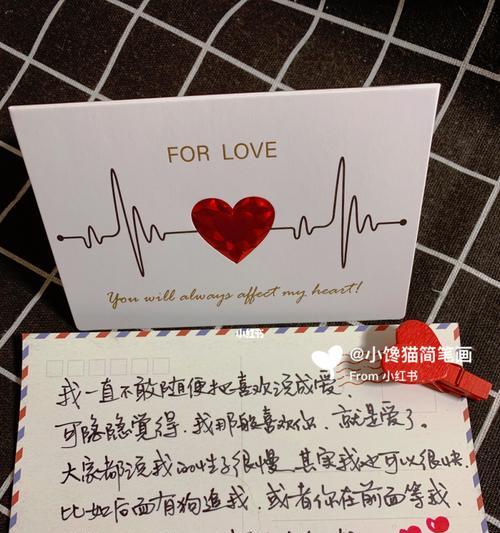 FOR LOVE
You will always affect my heart!
小红书
@小馋猫简笔画
From 小红书
我一直不敢随便把喜欢说成爱.
可隐隐觉得.我那般喜欢你.就是爱了。
大家都说我的性子很慢.其实我也可以很快.
比如后面有狗追我.或者你在前面等我.